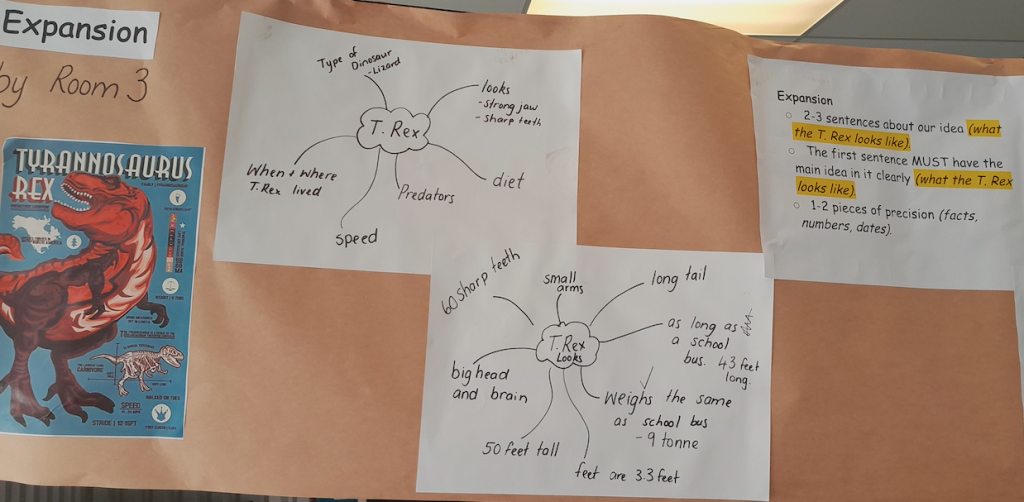 Expansion
by Room 3
TYRANNOSAURUS
REX
CARNIVORE
SPEED
Type of
Dinosaur
-Lizard
looks
-strong jaw
-sharp teeth
T. Rex
When + where
T. Rex lived
Predators
diet
speed
60 sharp teeth
small
arms
long tail
T. Rex
Looks
as long as
a school
bus. 43 feet
long.
big head
and brain
Weighs the same
as school bus
- 9 tonne
50 feet tall
feet are 3.3 feet
Expansion
○ 2-3 sentences about our idea (what
the T. Rex looks like).
○ The first sentence MUST have the
main idea in it clearly (what the T. Rex
looks like).
○ 1-2 pieces of precision (facts,
numbers, dates).